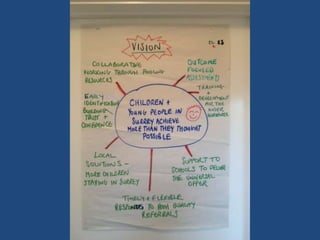 VISION
COLLABORATIVE
WORKING THROUGH POOLING
RESOURCES
OUTCOME
FOCUSED
ASSESSMENT
TRAINING
+
DEVELOPMENT
FOR THE
WIDER
WORKFORCE
EARLY
IDENTIFICATION
BUILDING
TRUST +
CONFIDENCE
CHILDREN +
YOUNG PEOPLE IN
SURREY ACHIEVE
MORE THAN THEY THOUGHT
POSSIBLE
LOCAL
SOLUTIONS -
MORE CHILDREN
STAYING IN SURREY
SUPPORT TO
SCHOOLS TO
THE UNIVERSAL
OFFER
TIMELY + FLEXIBLE
RESPONSES TO HIGH QUALITY
REFERRALS